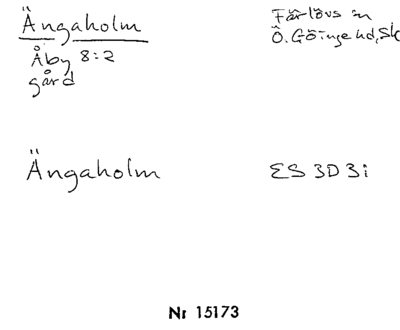 Ängaholm
Åby 8:2
gård
Färlövs sn
Ö. Göinge hd, Sk
Ängaholm
ES 3D 3i
Nr 15173